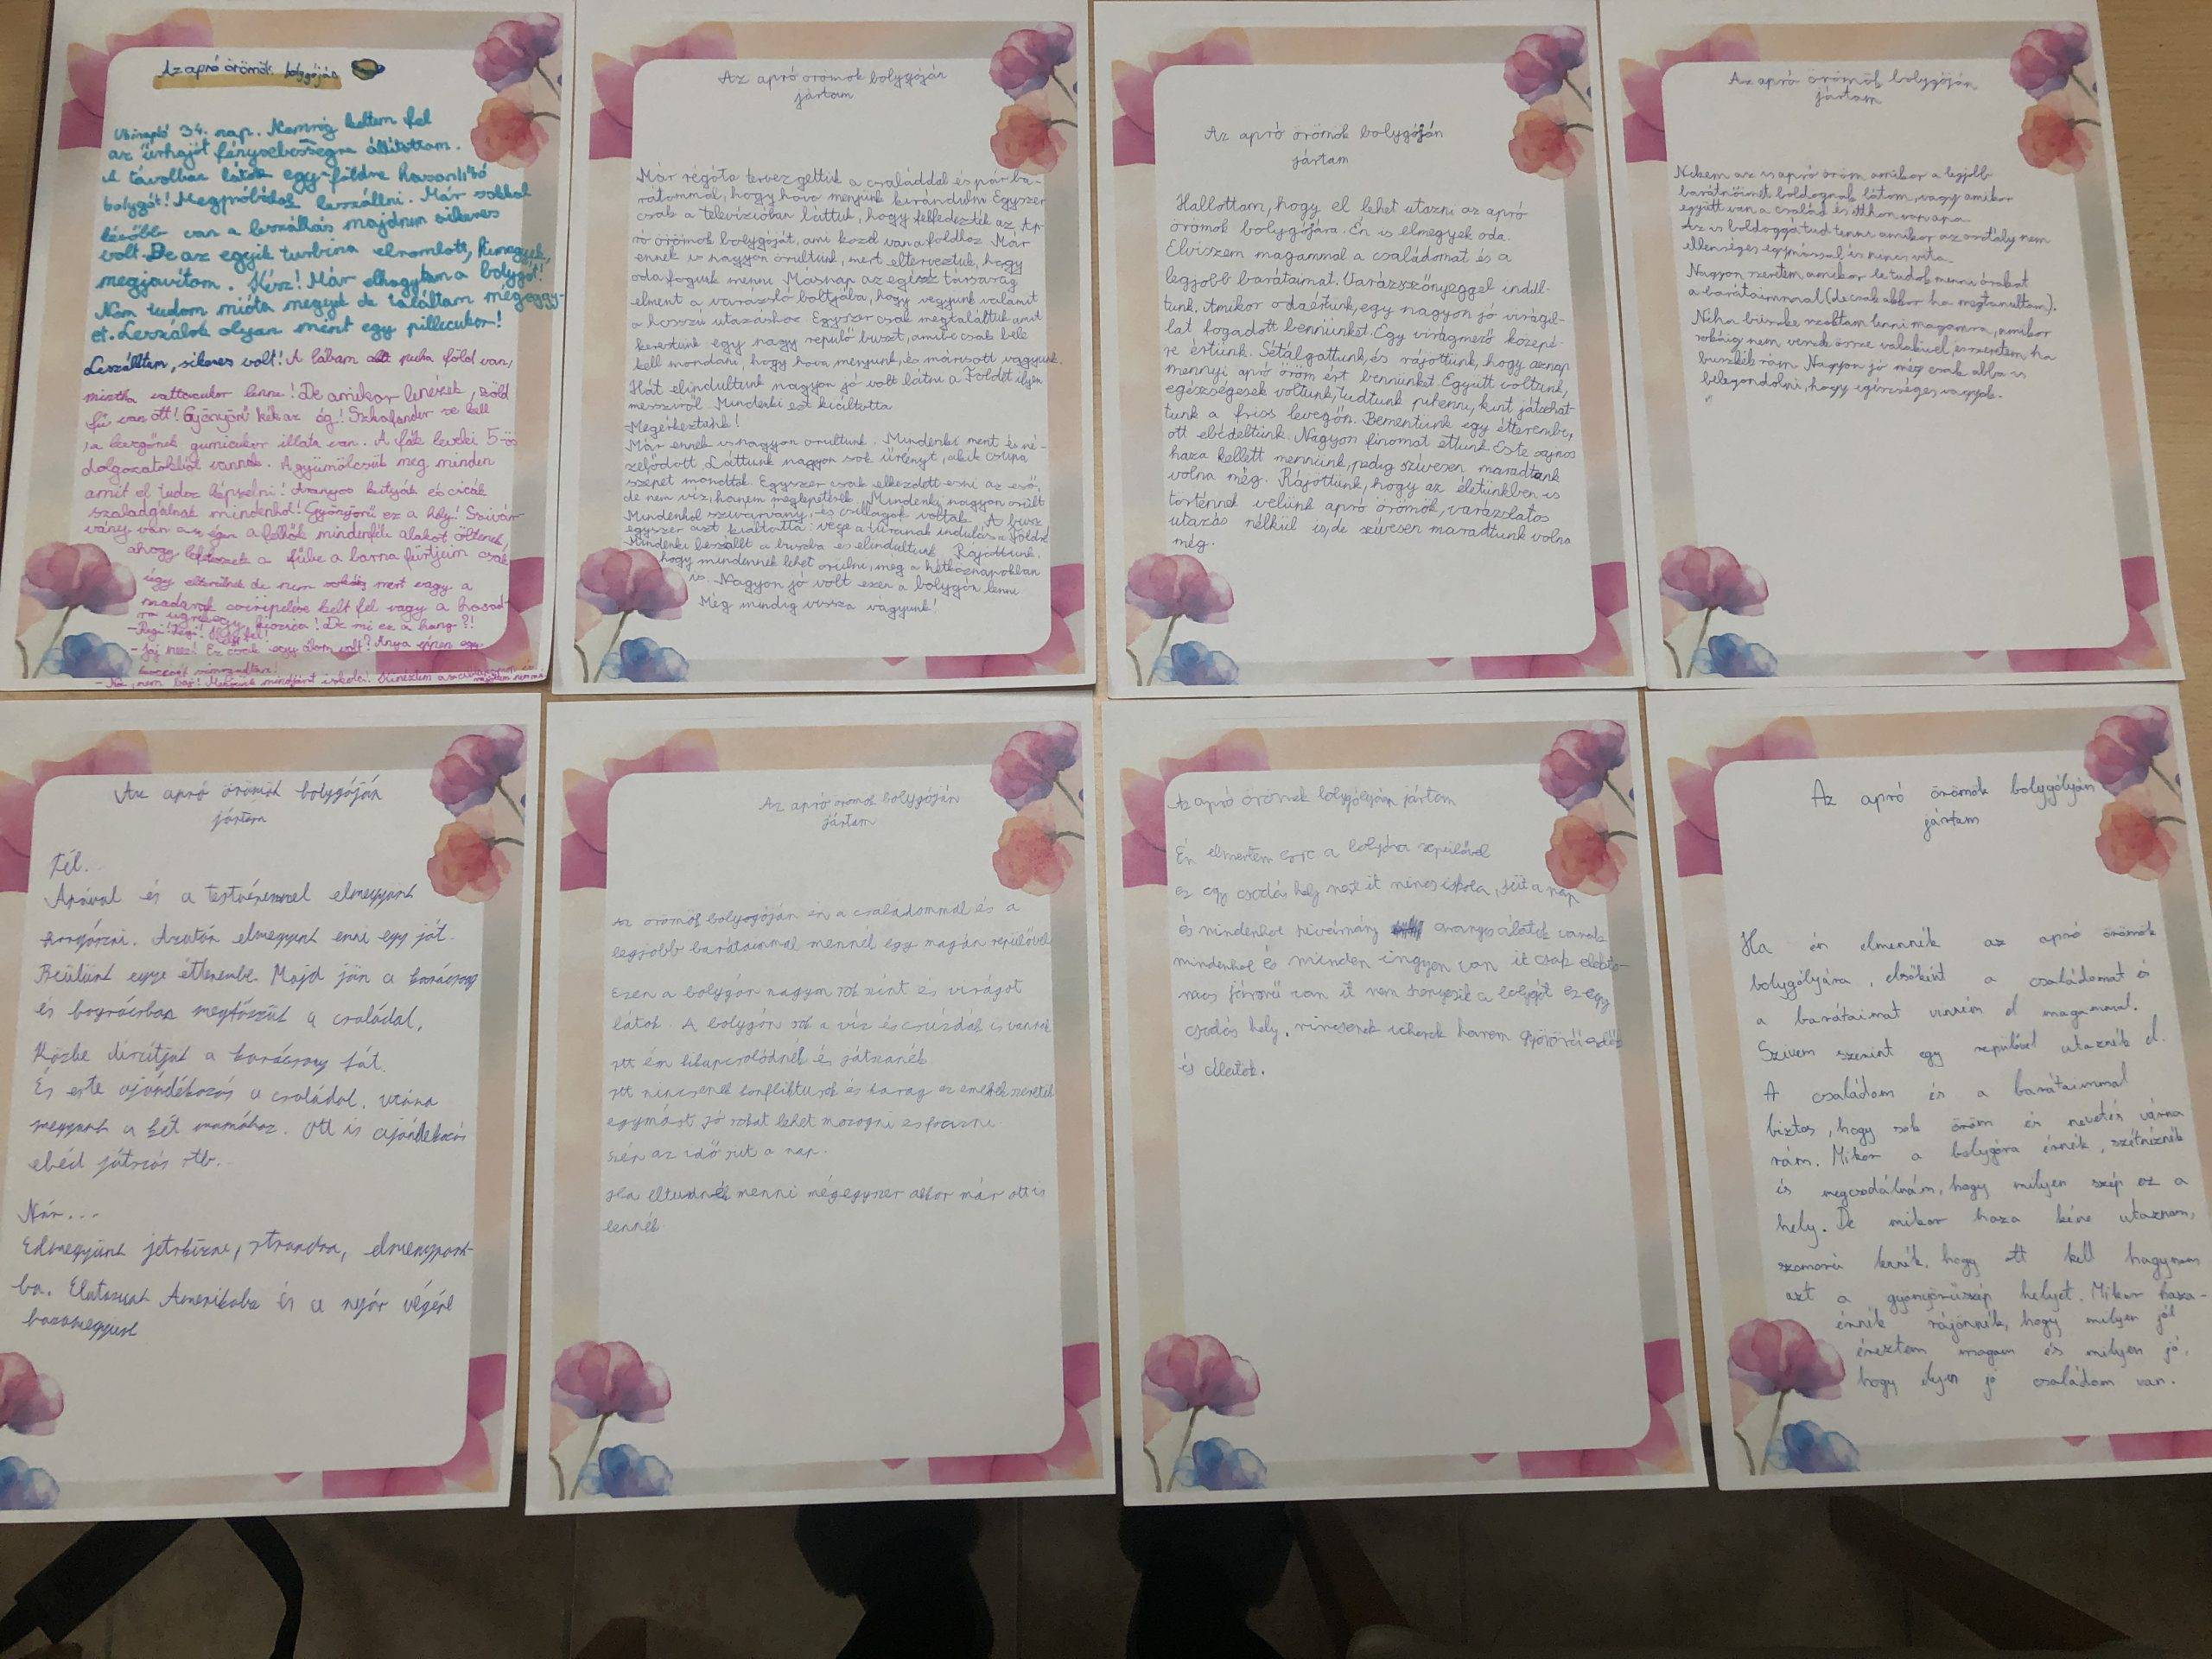 Az apró örömök bolygóján
Útinapló 34. nap. Nemrég keltem fel
az űrhajót fénysebességre állítottam.
A távolban látok egy földre hasonlító
bolygót! Megpróbálok leszállni. Már sokkal
később van a leszállás majdnem sikeres
volt. De az egyik turbina elromlott, kimegyek,
megjavítom. Kész! Már elhagytam a bolygót!
Nem tudom mióta megyek de találtam mégeggy-
et. Leszálok olyan mint egy pillecukor!
Leszálltam, sikeres volt! A lábam alatt puha föld van,
mintha vattacukor lenne! De amikor lenézek, zöld
fű van ott! Gyönyörű kék az ég! Szkafander se kell
, a levegőnek gumicukor illata van. A fák levelei 5-ös
dolgozatokból vannak. A gyümölcsük meg minden
amit el tudsz képzelni! Aranyos kutyák és cicák
szaladgálnak mindenhol! Gyönyörű ez a hely! Szivár-
vány van az égen a felhők mindenféle alakot öltenek,
ahogy lefekszek a fűbe a barna fürtjeim csak
úgy elterülnek de nem sokáig mert vagy a
madarak csiripelése kelt fel vagy a hasad-
De mi ez a hang?!
- Jaj neee! Ez csak egy álom volt? Anya
- Na, nem baj!
Az apró örömök bolygóján
jártam
Már régóta tervezgettük a családdal és pár ba-
rátommal, hogy hova menjünk kirándulni. Egyszer
csak a televízióban láttuk, hogy felfedezték az Ap-
ró örömök bolygóját, ami közel van a földhöz. Már
ennek is nagyon örültünk, mert elterveztük, hogy
oda fogunk menni. Másnap az egész társaság
elment a varázsló boltjába, hogy vegyünk valamit
a hosszú utazáshoz. Egyszer csak megtaláltuk amit
kerestünk egy nagy repülő buszt, amibe csak bele
kell mondani, hogy hova menjünk, és máris ott vagyunk.
Hát elindultunk nagyon jó volt látni a Földet ilyen
messziről. Mindenki ezt kiáltotta
- Megérkeztünk!
Már ennek is nagyon örültünk. Mindenki ment és né-
zelődött. Láttunk nagyon sok űrlényt, akik csupa
szépet mondtak. Egyszer csak elkezdett esni az eső,
de nem víz, hanem meglepetések. Mindenki nagyon örült
Mindenhol szivárvány, és csillagok voltak. A busz
egyszer azt kiáltotta: vége a túrának indulás a Földre
Mindenki beszállt a buszba és elindultunk. Rájöttünk,
hogy mindennek lehet örülni, még a hétköznapokban
is. Nagyon jó volt ezen a bolygón lenni
Még mindig vissza vágyunk!
Az apró örömök bolygóján
jártam
Hallottam, hogy el lehet utazni az apró
örömök bolygójára. Én is elmegyek oda.
Elviszem magammal a családomat és a
legjobb barátaimat. Varázsszőnyeggel indul-
tunk. Amikor odaértünk, egy nagyon jó virágil-
lat fogadott bennünket. Egy virágmező közepé-
re értünk. Sétálgattunk, és rájöttünk, hogy aznap
mennyi apró öröm ért bennünket. Együtt voltunk,
egészségesek voltunk, tudtunk pihenni, kint játszhat-
tunk a friss levegőn. Bementünk egy étterembe,
ott ebédeltünk. Nagyon finomat ettünk. Este sajnos
haza kellett mennünk, pedig szívesen maradtunk
volna még. Rájöttünk, hogy az életünkben is
történnek velünk apró örömök, varázslatos
utazás nélkül is, de szívesen maradtunk volna
még.
Az apró örömök bolygóján
jártam
Nekem az is apró öröm amikor a legjobb
barátnőimet boldognak látom, vagy amikor
együtt van a család és itthon van apa.
Az is boldoggá tud tenni amikor az osztály nem
ellenséges egymással és nincs vita.
Nagyon szeretem amikor le tudok menni órákat
a barátaimmal (de csak akkor ha megtanultam).
Néha büszke szoktam lenni magamra, amikor
sokáig nem veszek össze valakivel, és szeretem ha
büszkék rám. Nagyon jó még csak abba is
belegondolni, hogy egészséges vagyok.
Az apró örömök bolygóján
jártam
Tél...
Apával és a testvéremmel elmegyünk
horgászni. Azután elmegyünk enni egy jót.
Beülünk egy étterembe. Majd jön a karácsony
és bográcsban megfőzünk a családdal,
Közbe díszítjük a karácsony fát.
És este ajándékozás a családdal, utána
megyünk a két mamához. Ott is ajándékozás
ebéd játszás stb..
Nyár...
Elmegyünk jetskizni, strandra, élménypark-
ba. Elutazunk Amerikába és a nyár végére
hazamegyünk
Az apró örömök bolygóján
jártam
Az örömök bolygóján én a családommal és a
legjobb barátaimmal mennék egy magán repülővel
Ezen a bolygón nagyon sok színt és virágot
látok. A bolygón sok a víz és csúzdák is vannak
itt én kikapcsolódnék és játszanék
itt nincsenek konfliktusok és harag az emberek szeretik
egymást jó sokat lehet mozogni és focizni.
Szép az idő süt a nap.
Ha eltudnék menni mégegyszer akkor már ott is
lennék.
Az apró örömek bolygójóan jártam
Én elmentem erre a bolyóra repülővel
ez egy csodás hely mert it nincs iskola, süt a nap
és mindenhol szivárvány aranyos álatok vanak
mindenhol és minden ingyen van it csak elekto-
mos járművan it nem szenyezik a bolygót ez egy
csodás hely. nincsenek
és álatok.
Az apró örömök bolygólyán
jártam
Ha én elmennék az apró örömök
bolygólyára, elsőként a családomat és
a barátaimat vinném el magammal.
Szívem szerint egy repülővel utaznék el.
A családom és a barátaimmal
biztos, hogy sok öröm és nevetés várna
rám. Mikor a bolygóra érnék, szétnéznék
és megcsodálnám, hogy milyen szép ez a
hely. De mikor haza kéne utaznom,
szomorú lennék, hogy ott kell hagynom
azt a gyönyörűszép helyet. Mikor haza-
érnék rájönnék, hogy milyen jól
éreztem magam és milyen jó,
hogy ilyen jó családom van.